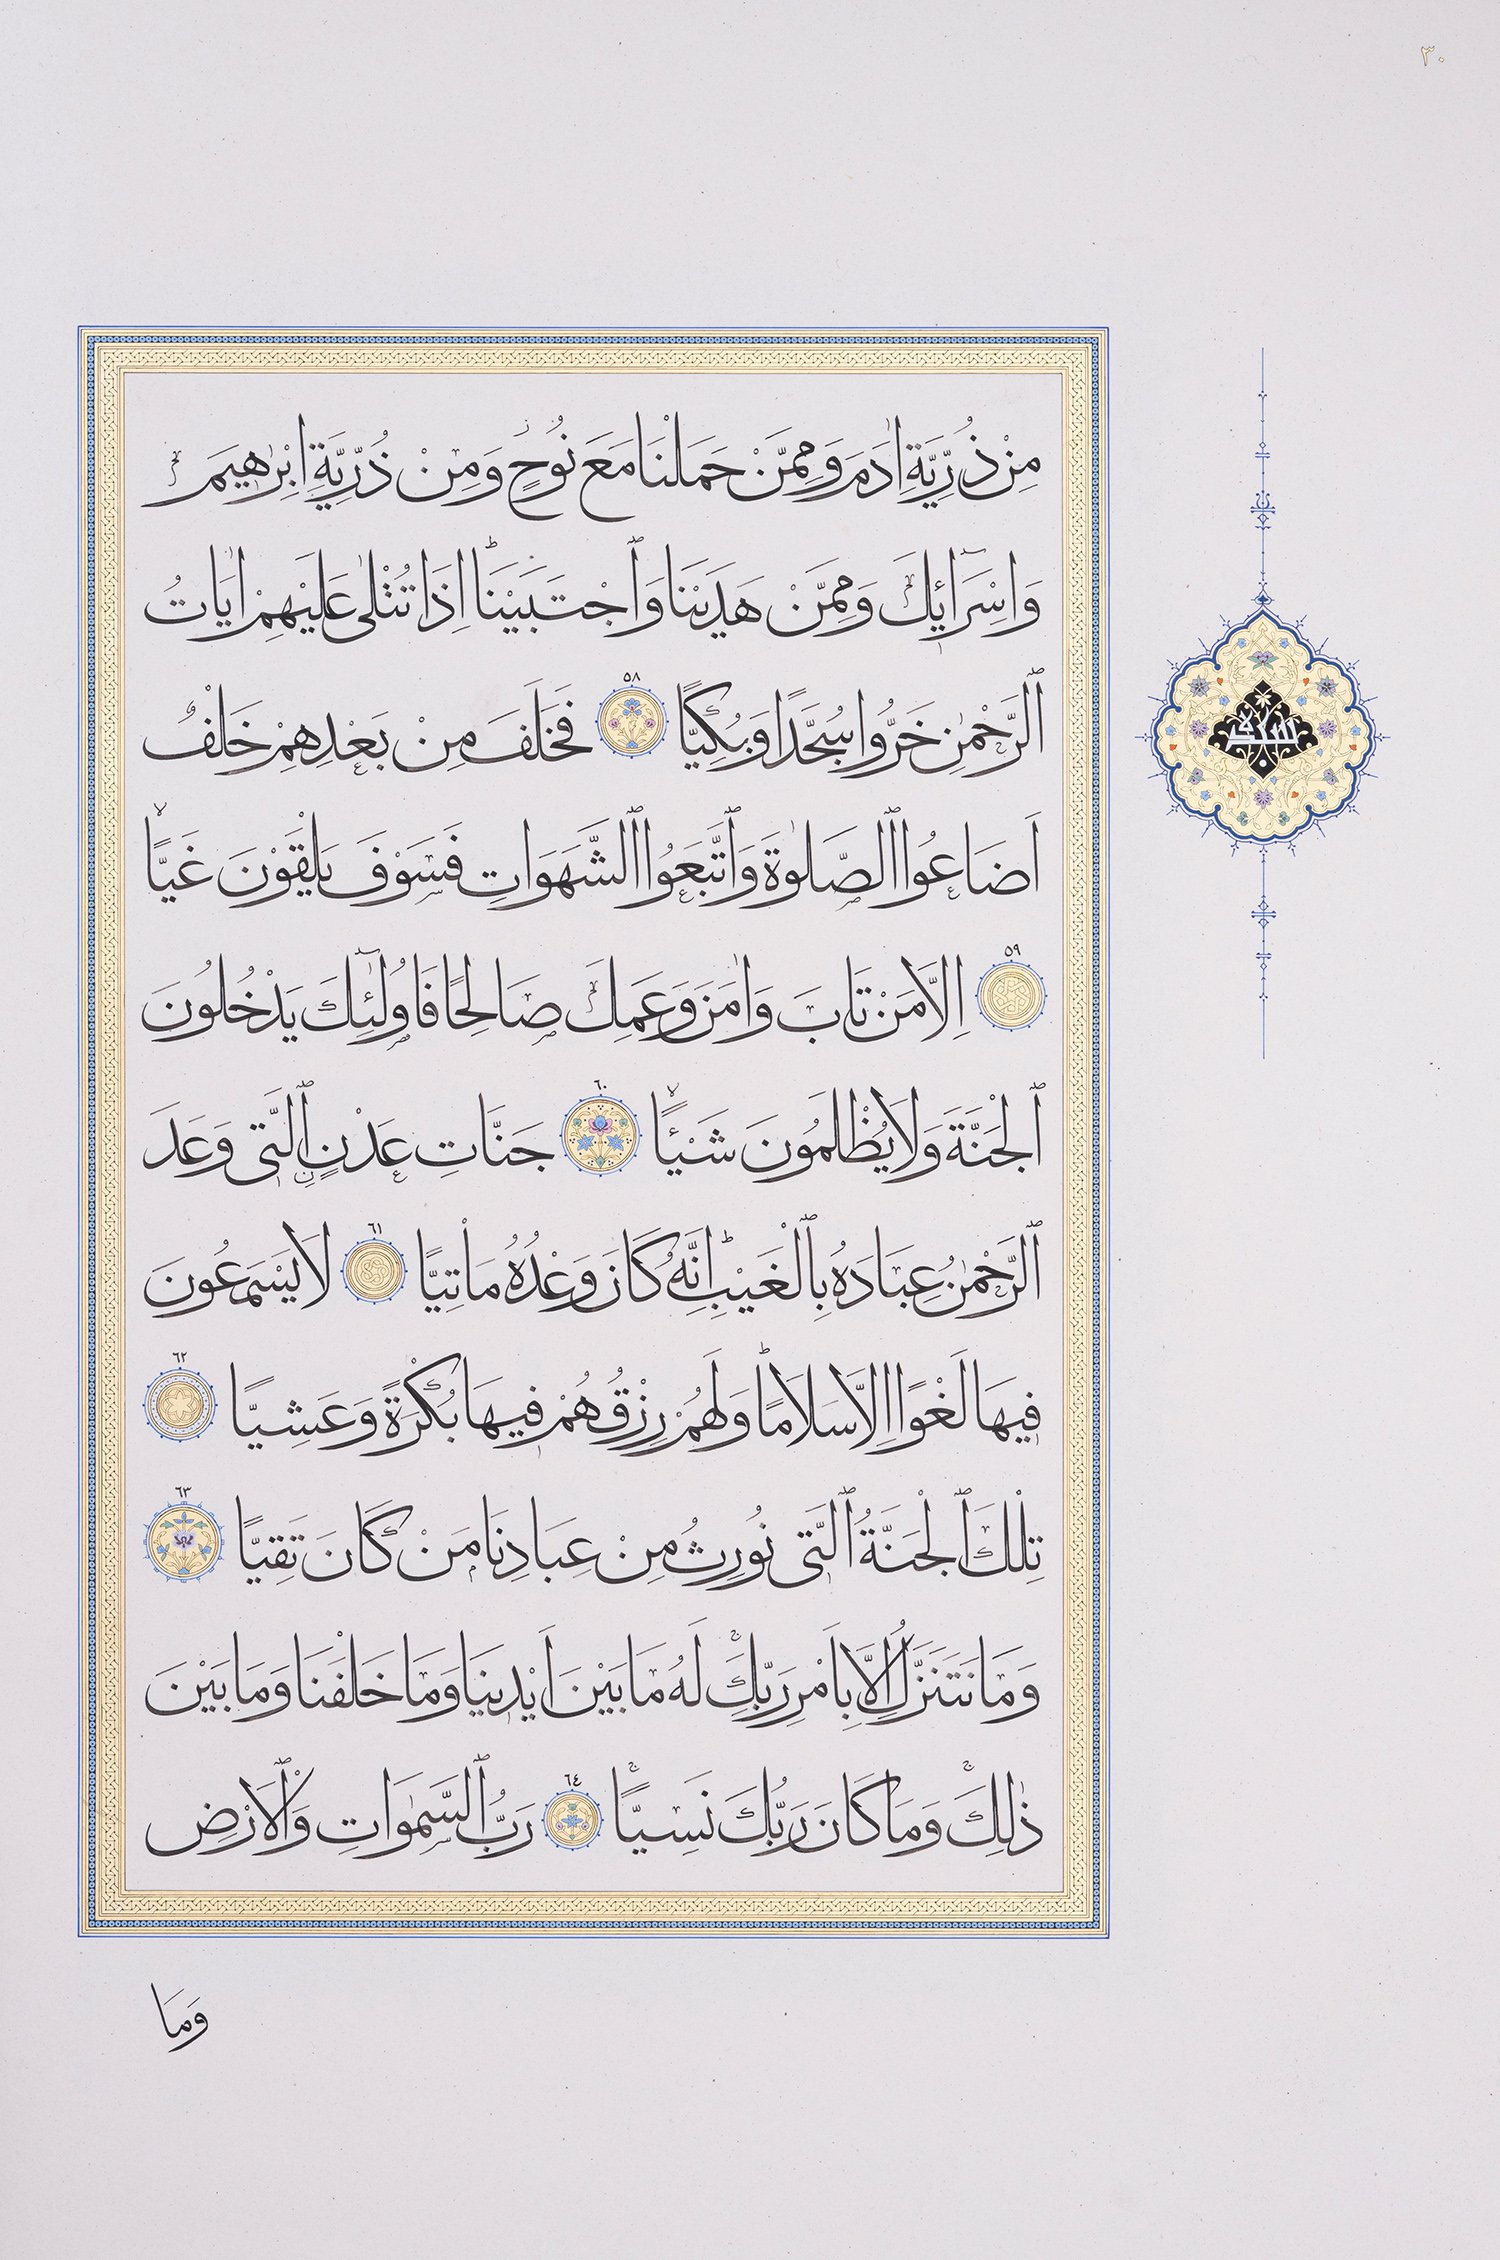 ٣٠
مِنْ ذُرِّيَّةِ اٰدَمَ وَمِمَّنْ حَمَلْنَا مَعَ نُوحٍ وَمِنْ ذُرِّيَّةِ اِبْرٰهِيمَ
وَاِسْرَٓائِلَ وَمِمَّنْ هَدَيْنَا وَاجْتَبَيْنَا اِذَا تُتْلٰى عَلَيْهِمْ اٰيَاتُ
الرَّحْمٰنِ خَرُّوا سُجَّدًا وَبُكِيًّا ٥٨ فَخَلَفَ مِنْ بَعْدِهِمْ خَلْفٌ
اَضَاعُوا الصَّلٰوةَ وَاتَّبَعُوا الشَّهَوَاتِ فَسَوْفَ يَلْقَوْنَ غَيًّا
٥٩ اِلَّا مَنْ تَابَ وَاٰمَنَ وَعَمِلَ صَالِحًا فَاُولٰٓئِكَ يَدْخُلُونَ
الْجَنَّةَ وَلَا يُظْلَمُونَ شَيْئًا ٦٠ جَنَّاتِ عَدْنٍ الَّتٖى وَعَدَ
الرَّحْمٰنُ عِبَادَهُ بِالْغَيْبِ اِنَّهُ كَانَ وَعْدُهُ مَأْتِيًّا ٦١ لَا يَسْمَعُونَ
فِيهَا لَغْوًا اِلَّا سَلَامًا وَلَهُمْ رِزْقُهُمْ فِيهَا بُكْرَةً وَعَشِيًّا ٦٢
تِلْكَ الْجَنَّةُ الَّتٖى نُورِثُ مِنْ عِبَادِنَا مَنْ كَانَ تَقِيًّا ٦٣
وَمَا نَتَنَزَّلُ اِلَّا بِاَمْرِ رَبِّكَ لَهُ مَا بَيْنَ اَيْدِينَا وَمَا خَلْفَنَا وَمَا بَيْنَ
ذٰلِكَ وَمَا كَانَ رَبُّكَ نَسِيًّا ٦٤ رَبُّ السَّمٰوَاتِ وَالْاَرْضِ
وَمَا